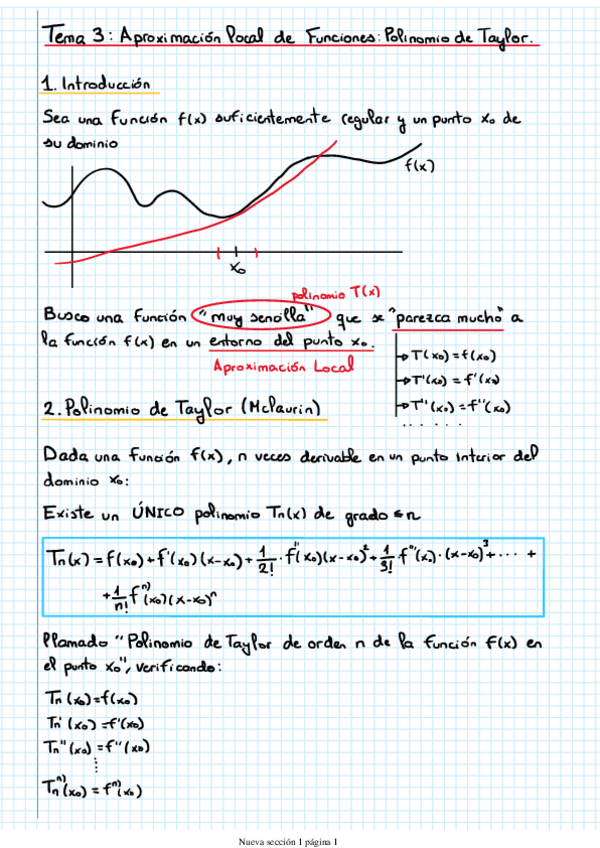 Tema 3: Aproximación local de Funciones: Polinomio de Taylor.
1. Introducción
Sea una función f(x) suficientemente regular y un punto x₀ de
su dominio
f(x)
x₀
polinomio T(x)
Busco una función "muy sencilla" que se "parezca mucho" a
la función f(x) en un entorno del punto x₀.
Aproximación Local
→ T(x₀) = f(x₀)
→ T'(x₀) = f'(x₀)
→ T''(x₀) = f''(x₀)
......
2. Polinomio de Taylor (Mclaurin)
Dada una función f(x), n veces derivable en un punto interior del
dominio x₀:
Existe un ÚNICO polinomio Tn(x) de grado ≤ n
Tn(x) = f(x₀) + f'(x₀)(x-x₀) + 1/2! · f''(x₀)(x-x₀)² + 1/3! f'''(x₀) · (x-x₀)³ + ··· +
+ 1/n! fⁿ⁾(x₀)(x-x₀)ⁿ
llamado "Polinomio de Taylor de orden n de la función f(x) en
el punto x₀", verificando:
Tn(x₀) = f(x₀)
Tn'(x₀) = f'(x₀)
Tn''(x₀) = f''(x₀)
⋮
Tnⁿ⁾(x₀) = fⁿ⁾(x₀)
Nueva sección 1 página 1